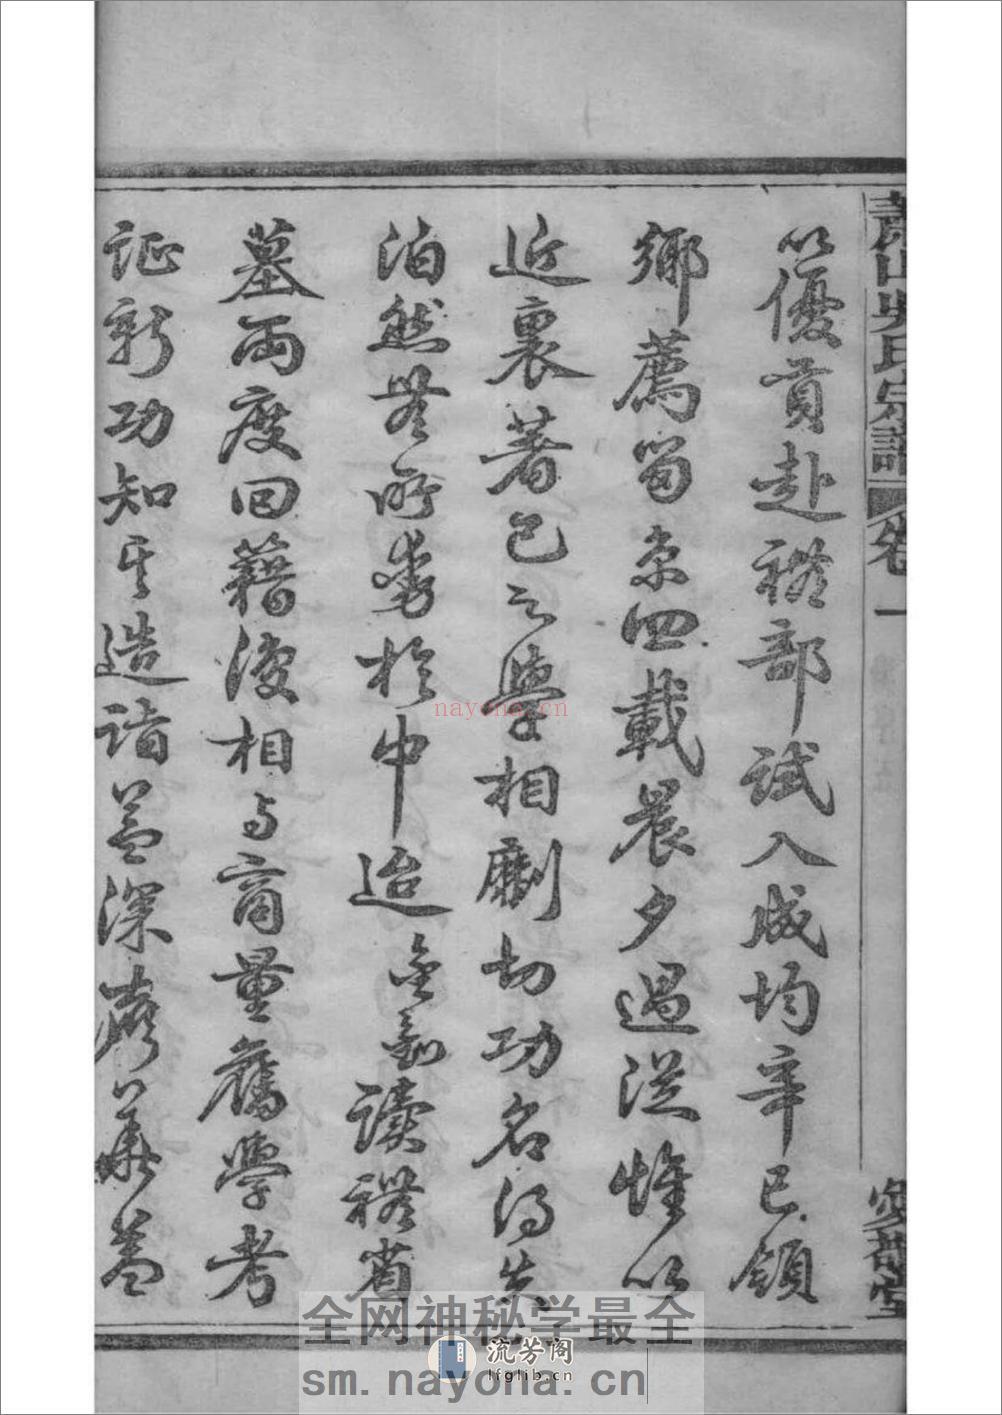 蕭山吳氏宗譜 卷一
以優貢赴禮部試入成均辛巳領
鄉薦留京四載晨夕過從惟以
近裏著己之學相劘切功名得失
泊然無所動於中迨余讀禮省
墓兩度回籍復相与商量舊學考
証新功知其造詣益深蓋
nayona.cn
全网神秘学最全
流芳阁
lfglib.cn
sm.nayona.cn